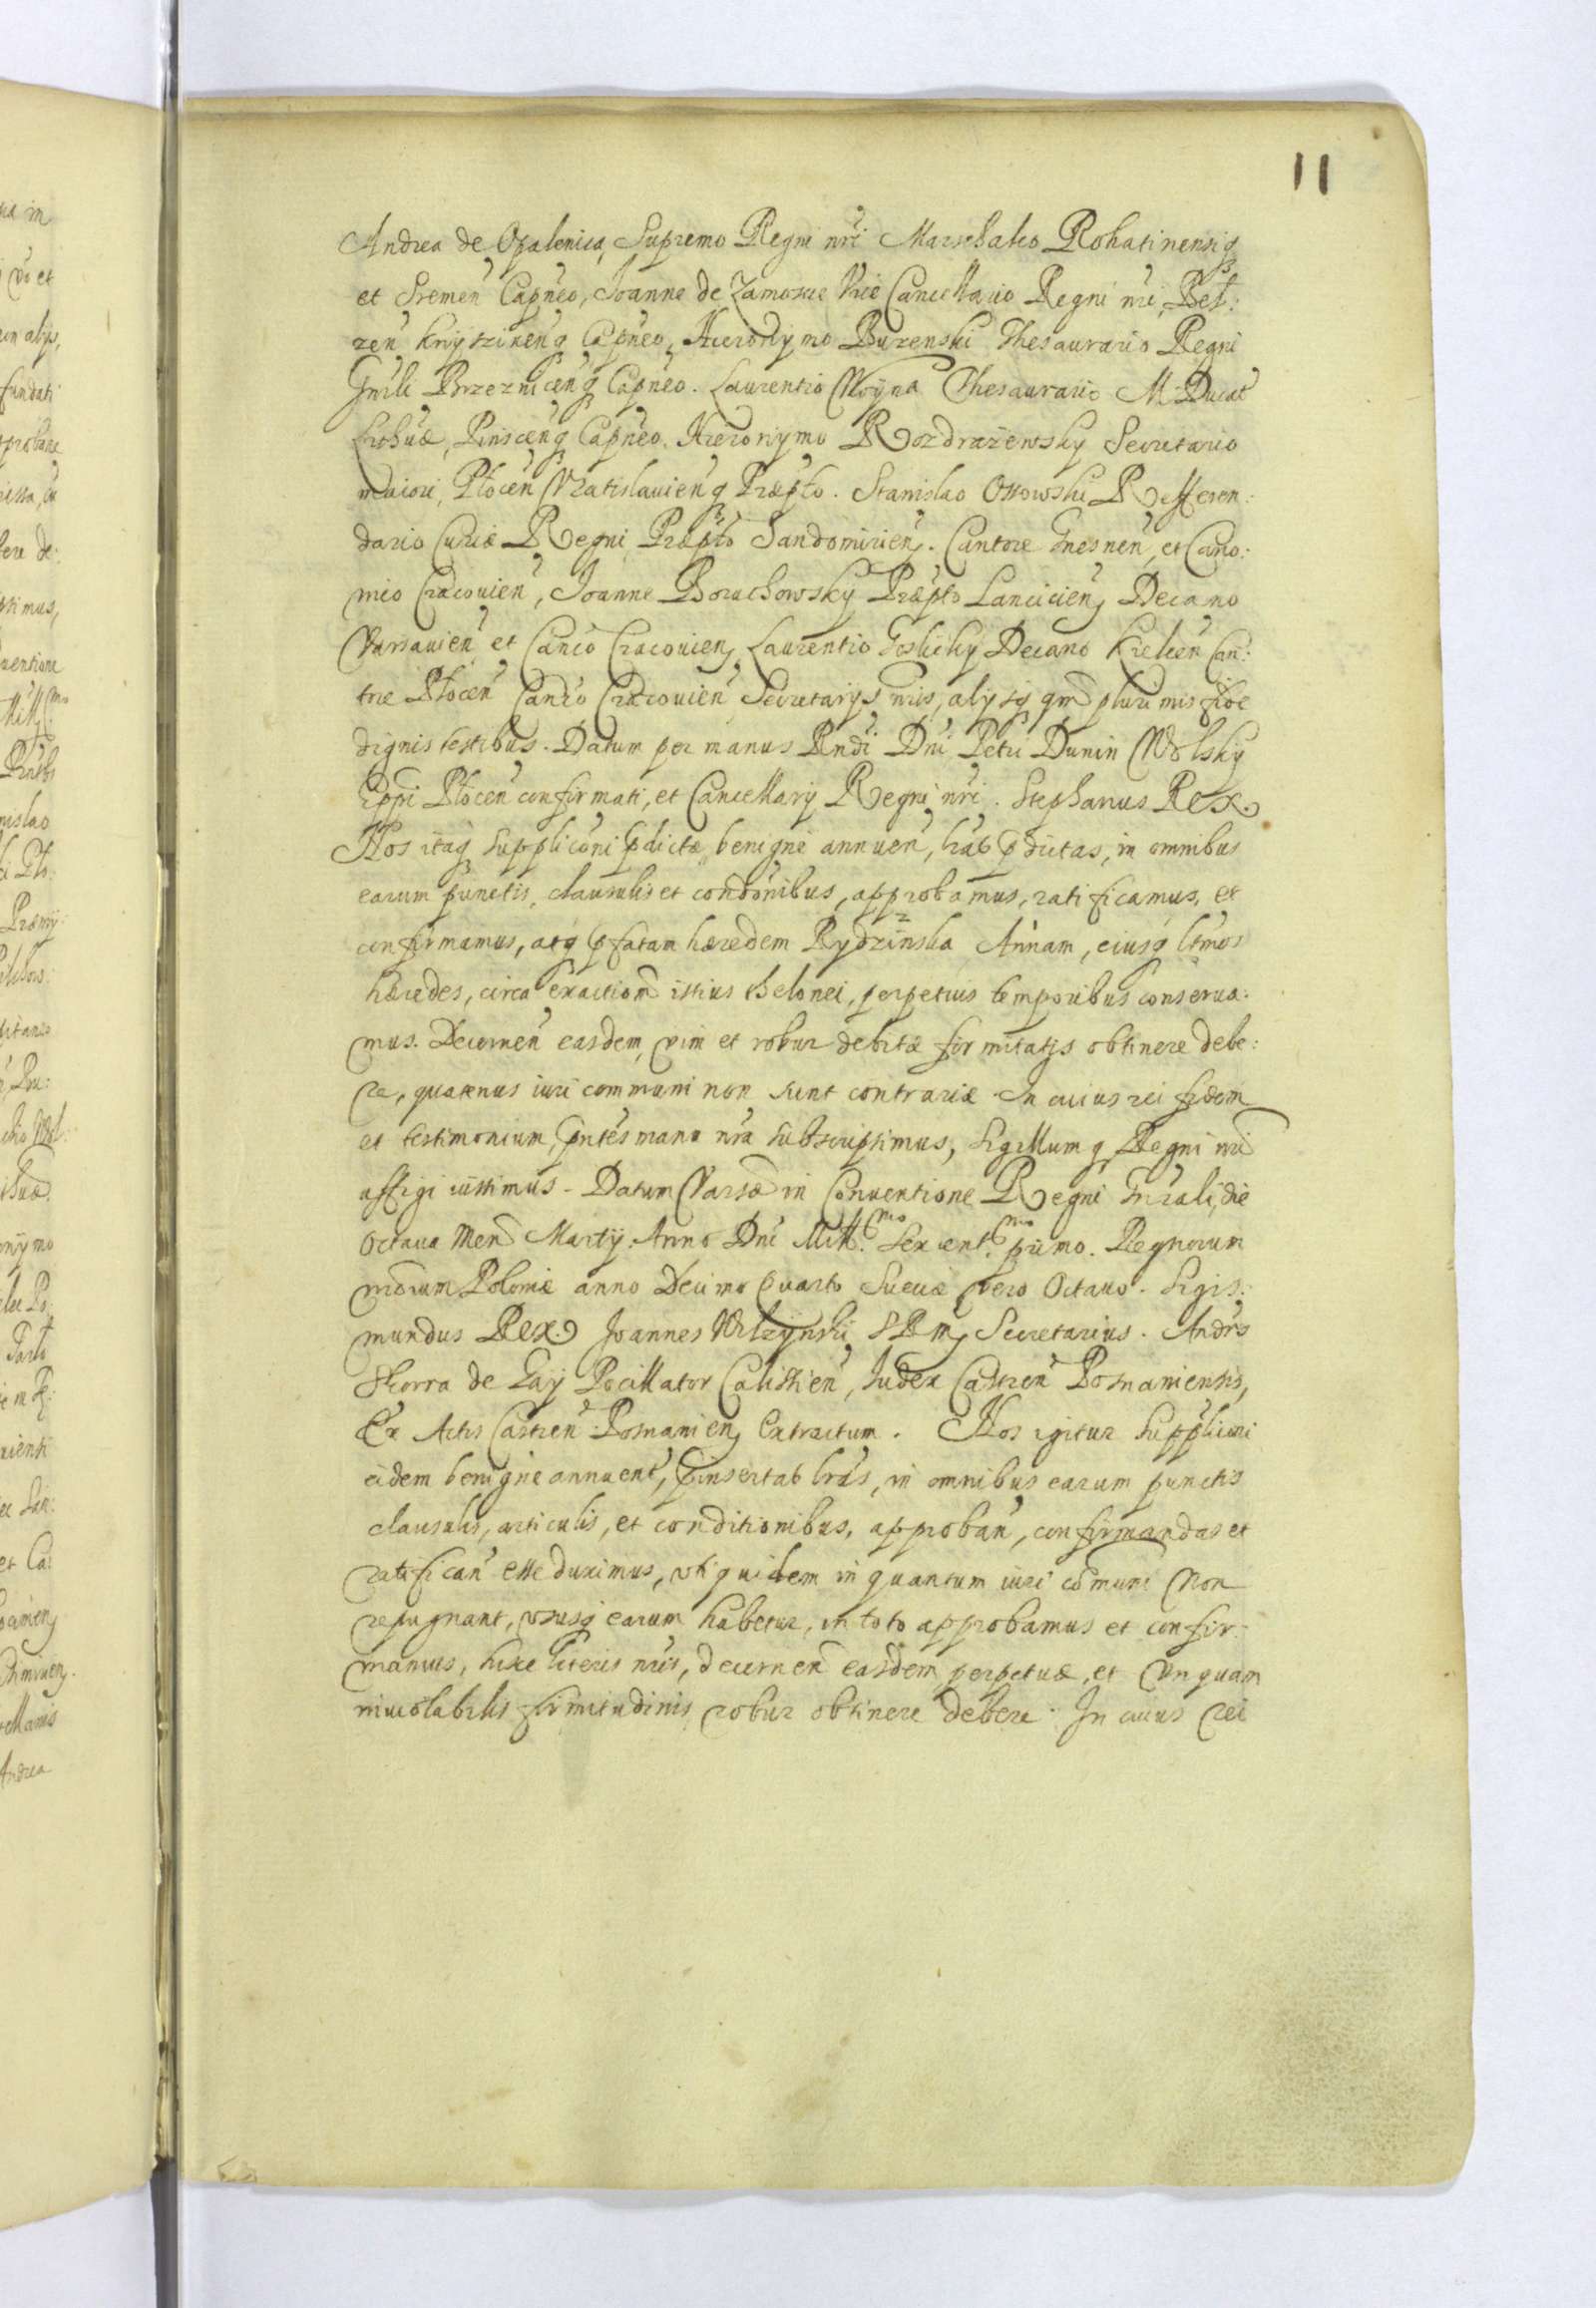 11
Andrea de Opalenica, Supremo Regni nri Marschalco Rohatinensiq
et Sremen Capneo, Joanne de Zamoscie Vice Cancellario Regni nri, Bel:
zen Knyszinenq Capneo, Hieronymo Buzenski Thesaurario Regni
Gnrli Brzeznicenq Capneo. Laurentio Woyna Thesaurario M Ducat
Lithuæ, Pinscenq Capneo. Hieronymo Rozdrazewsky Secretario
maiori, Plocen Wratislavienq Præpto. Stanislao Ossowski Refferen:
dario Curiæ Regni Præpto Sandomirien. Cantore Gnesnen, et Cano:
nico Cracovien, Joanne Boruchowsky Præpto Lancicien, Decano
Varsavien et Canco Cracovien, Laurentio Goslicky Decano Kielcen Can:
tre Plocen Canco Cracovien Secretarys nris, alysq qm pluri mis fide
dignis testibus. Datum per manus Rndi Dni Petri Dunin Wolsky
Eppi Plocen confirmati, et Cancellary Regni nri. Stephanus Rex
Nos itaq suppliconi pdictæ benigne annuen, has pdictas, in omnibus
earum punctis, clausulis et condonibus, approbamus, ratificamus, et
confirmamus, atq pfatam hæredem Rydzinska Annam, eiusq ltmos
hæredes, circa exactiom istius thelonei, perpetuis temporibus conserva:
mus. Decernen easdem, vim et robur debitæ firmitatis obtinere debe:
re, quatenus iuri communi non sunt contrariæ. In cuius rei fidem
et testimonium, pntes manu nra subscripsimus, Sigillumq Regni nri
affigi iussimus. Datum Varsæ in Conventione Regni Gnrali, die
Octava Men Martij Anno Dni Mill.mo Sexcent.mo primo. Regnorum
nrorum Poloniæ anno Decimo Quarto Sueciæ vero Octavo. Sigis:
mundus Rex. Joannes Wilczynski, S R M Secretarius. Andrs
Skorra de Gay Pocillator Calissien, Iudex Castren Posnaniensis,
Ex Actis Castren Posnanien Extractum. Nos igitur Supplicni
eidem benigne annuent, pinsertas lras, in omnibus earum punctis
clausulis, articulis, et conditionibus, approban, confirmandas et
ratifican esse duximus, uti quidem in quantum iuri comuni non
repugnant, ususq earum habetur, in toto approbamus et confir:
mamus, hisce literis nris, decernen easdem perpetuæ, et unquam
inviolabilis firmitudinis robur obtinere debere. In cuius rei